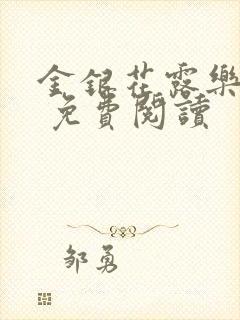 金銀花露樂
免費閱讀
鄒勇